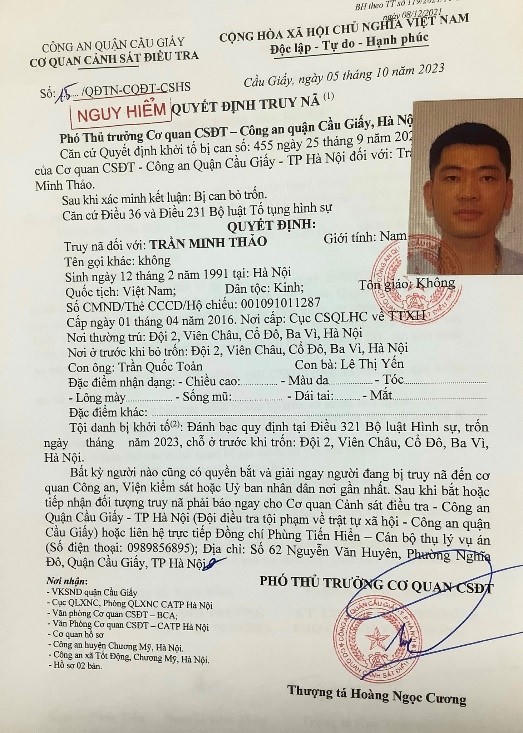 BH theo TT số 119/2021/
ngày 08/12/2021
CÔNG AN QUẬN CẦU GIẤY
CƠ QUAN CẢNH SÁT ĐIỀU TRA
CỘNG HÒA XÃ HỘI CHỦ NGHĨA VIỆT NAM
Độc lập - Tự do - Hạnh phúc
Số: 15 /QĐTN-CQĐT-CSHS
Cầu Giấy, ngày 05 tháng 10 năm 2023
NGUY HIỂM
QUYẾT ĐỊNH TRUY NÃ (1)
Phó Thủ trưởng Cơ quan CSĐT – Công an quận Cầu Giấy, Hà Nội
Căn cứ Quyết định khởi tố bị can số: 455 ngày 25 tháng 9 năm 202
của Cơ quan CSĐT - Công an Quận Cầu Giấy - TP Hà Nội đối với: Trầ
Minh Thảo.
Sau khi xác minh kết luận: Bị can bỏ trốn.
Căn cứ Điều 36 và Điều 231 Bộ luật Tố tụng hình sự
QUYẾT ĐỊNH:
Truy nã đối với: TRẦN MINH THẢO Giới tính: Nam
Tên gọi khác: không
Sinh ngày 12 tháng 2 năm 1991 tại: Hà Nội
Quốc tịch: Việt Nam; Dân tộc: Kinh; Tôn giáo: Không
Số CMND/Thẻ CCCD/Hộ chiếu: 001091011287
Cấp ngày 01 tháng 04 năm 2016. Nơi cấp: Cục CSQLHC về TTXH
Nơi thường trú: Đội 2, Viên Châu, Cổ Đô, Ba Vì, Hà Nội
Nơi ở trước khi bỏ trốn: Đội 2, Viên Châu, Cổ Đô, Ba Vì, Hà Nội
Con ông: Trần Quốc Toản Con bà: Lê Thị Yến
Đặc điểm nhận dạng: - Chiều cao: - Màu da - Tóc
- Lông mày - Sống mũ: - Dái tai: - Mắt
Đặc điểm khác:
Tội danh bị khởi tố(2): Đánh bạc quy định tại Điều 321 Bộ luật Hình sự, trốn
ngày tháng năm 2023, chỗ ở trước khi trốn: Đội 2, Viên Châu, Cổ Đô, Ba Vì,
Hà Nội.
Bất kỳ người nào cũng có quyền bắt và giải ngay người đang bị truy nã đến cơ
quan Công an, Viện kiểm sát hoặc Uỷ ban nhân dân nơi gần nhất. Sau khi bắt hoặc
tiếp nhận đối tượng truy nã phải báo ngay cho Cơ quan Cảnh sát điều tra - Công an
Quận Cầu Giấy - TP Hà Nội (Đội điều tra tội phạm về trật tự xã hội - Công an quận
Cầu Giấy) hoặc liên hệ trực tiếp Đồng chí Phùng Tiến Hiển – Cán bộ thụ lý vụ án
(Số điện thoại: 0989856895); Địa chỉ: Số 62 Nguyễn Văn Huyên, Phường Nghĩa
Đô, Quận Cầu Giấy, TP Hà Nội.
Nơi nhận:
- VKSND quận Cầu Giấy
- Cục QLXNC, Phòng QLXNC CATP Hà Nội
- Văn phòng Cơ quan CSĐT – BCA;
- Văn Phòng Cơ quan CSĐT – CATP Hà Nội
- Cơ quan hồ sơ
- Công an huyện Chương Mỹ, Hà Nội.
- Công an xã Tốt Động, Chương Mỹ, Hà Nội.
- Hồ sơ 02 bản.
PHÓ THỦ TRƯỞNG CƠ QUAN CSĐT
Thượng tá Hoàng Ngọc Cương